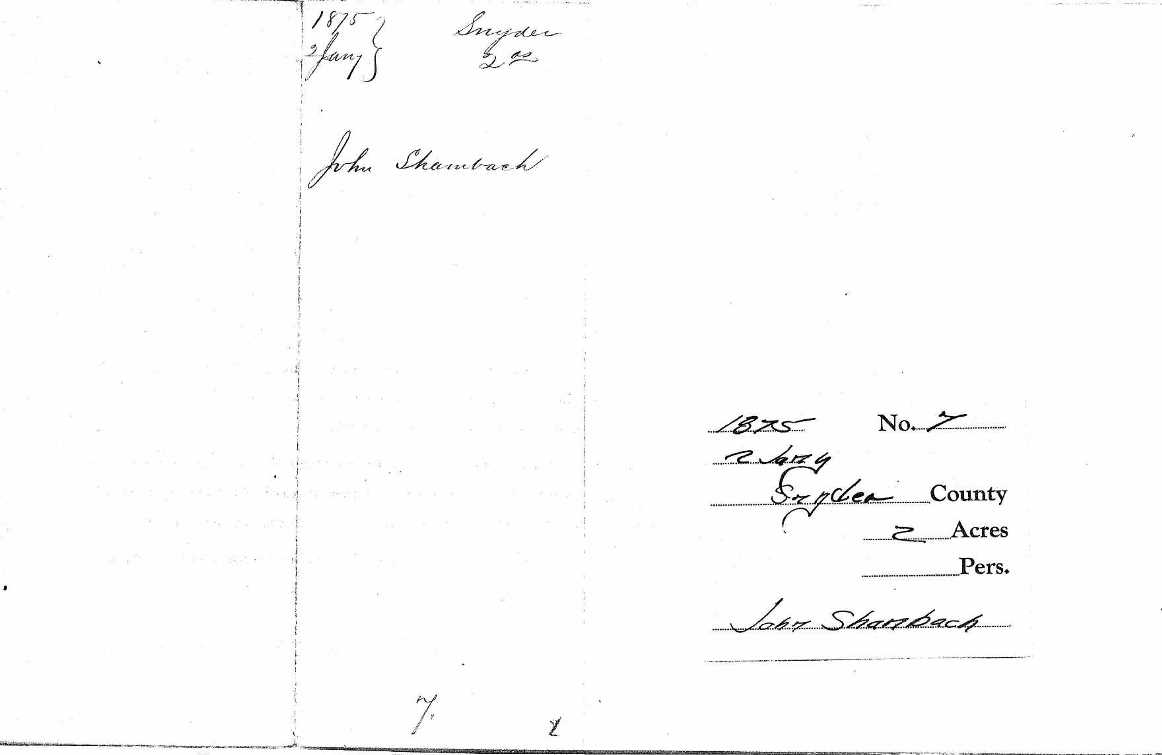 1875 } Snyder
2 Jany } 2 as
John Shambach
1875 No. 7
2 Jany
Snyder County
2 Acres
Pers.
John Shambach
7.